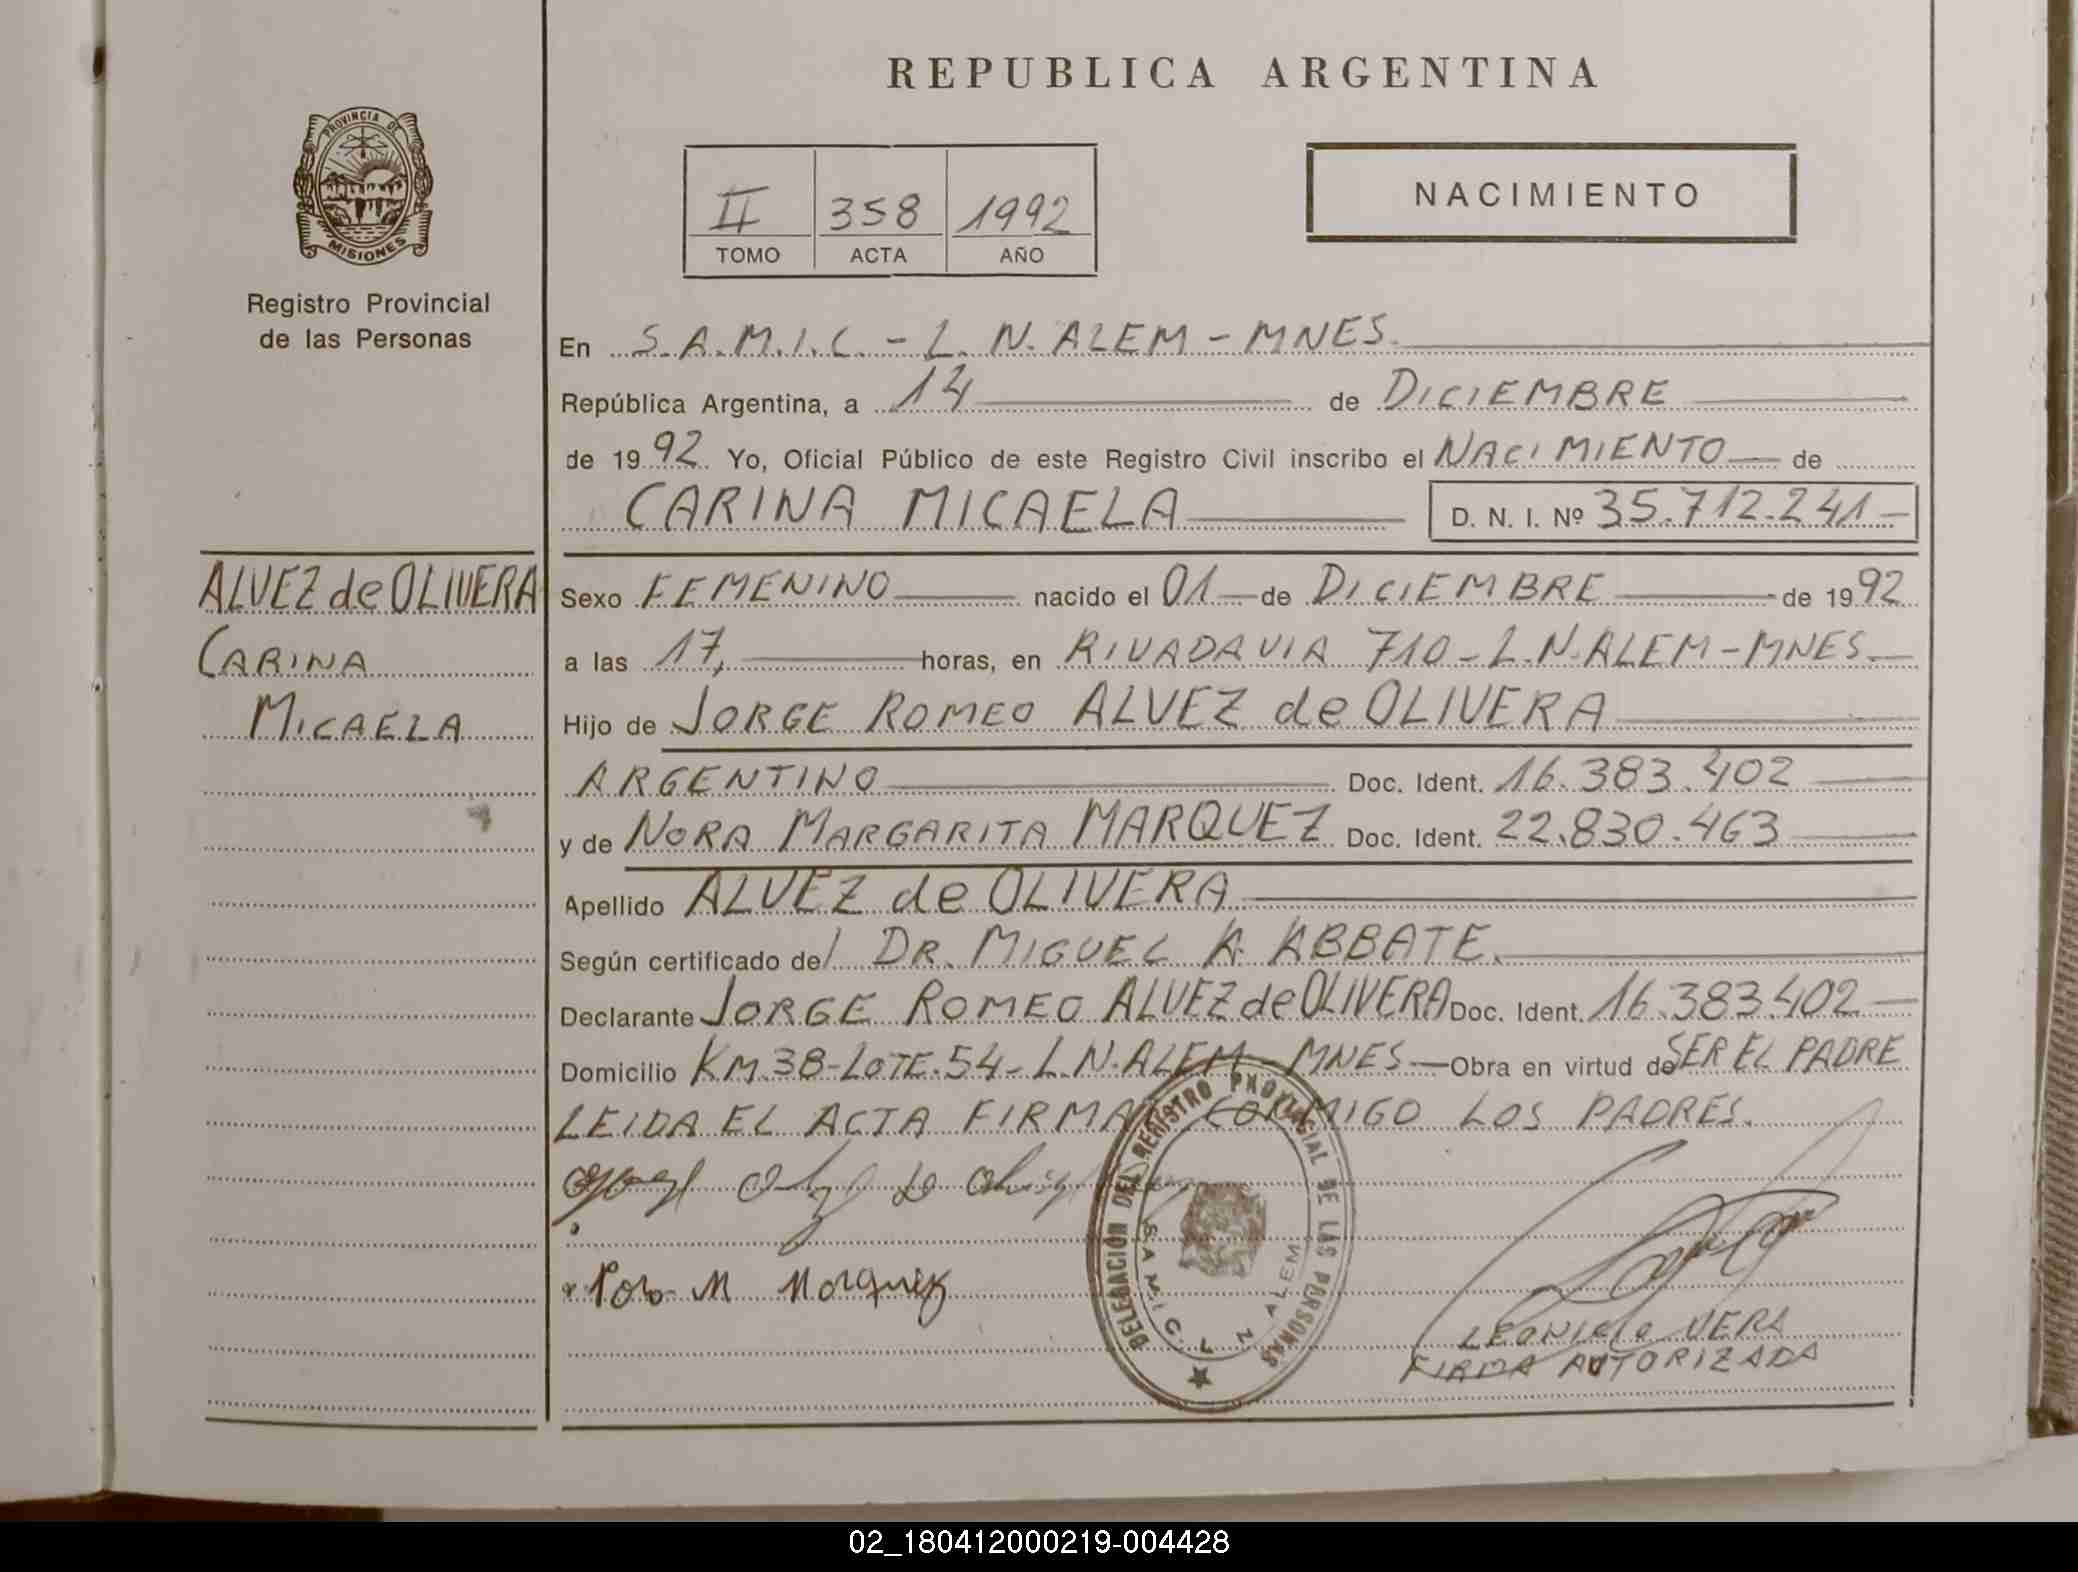 REPUBLICA ARGENTINA
PROVINCIA DE
MISIONES
Registro Provincial
de las Personas
II 358 1992
TOMO ACTA AÑO
NACIMIENTO
En S.A.M.I.C. - L. N. ALEM - MNES.
República Argentina, a 14 de DICIEMBRE
de 1992. Yo, Oficial Público de este Registro Civil inscribo el NACIMIENTO de
CARINA MICAELA D. N. I. Nº 35.712.241
ALVEZ de OLIVERA
CARINA
MICAELA
Sexo FEMENINO nacido el 01 de DICIEMBRE de 1992
a las 17, horas, en RIVADAVIA 710 - L.N. ALEM - MNES
Hijo de JORGE ROMEO ALVEZ de OLIVERA
ARGENTINO Doc. Ident. 16.383.402
y de NORA MARGARITA MARQUEZ Doc. Ident. 22.830.463
Apellido ALVEZ de OLIVERA
Según certificado del DR. MIGUEL A. ABBATE.
Declarante JORGE ROMEO ALVEZ de OLIVERA Doc. Ident. 16.383.402
Domicilio KM.38-LOTE.54-L.N.ALEM-MNES Obra en virtud de SER EL PADRE
LEIDA EL ACTA FIRMAN CONMIGO LOS PADRES.
DELEGACION DEL REGISTRO PROVINCIAL DE LAS PERSONAS
S A M I C. L N ALEM
M Marquez
VERA
FIRMA AUTORIZADA
02_180412000219-004428